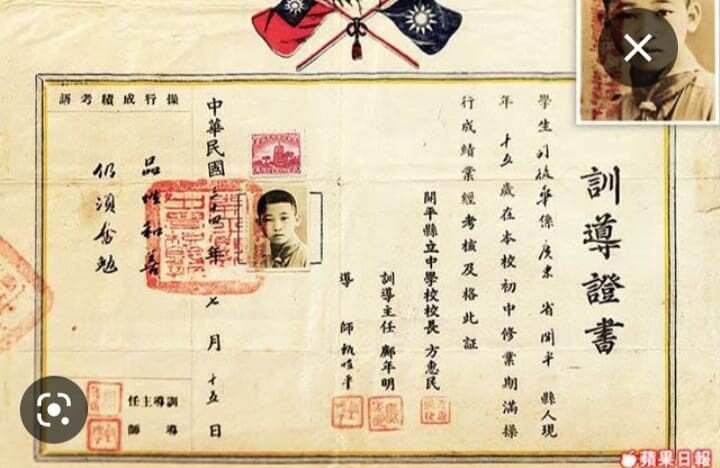 訓導證書
學生司徒華係廣東省開平縣人現
年十五歲在本校初中修業期滿操
行成績業經考核及格此証
開平縣立中學校校長 方惠民
訓導主任 鄺年明
導師
中華民國三十四年七月十五日
操行成績考語
品性和善
仍須奮勉
訓導主任
導師
蘋果日報